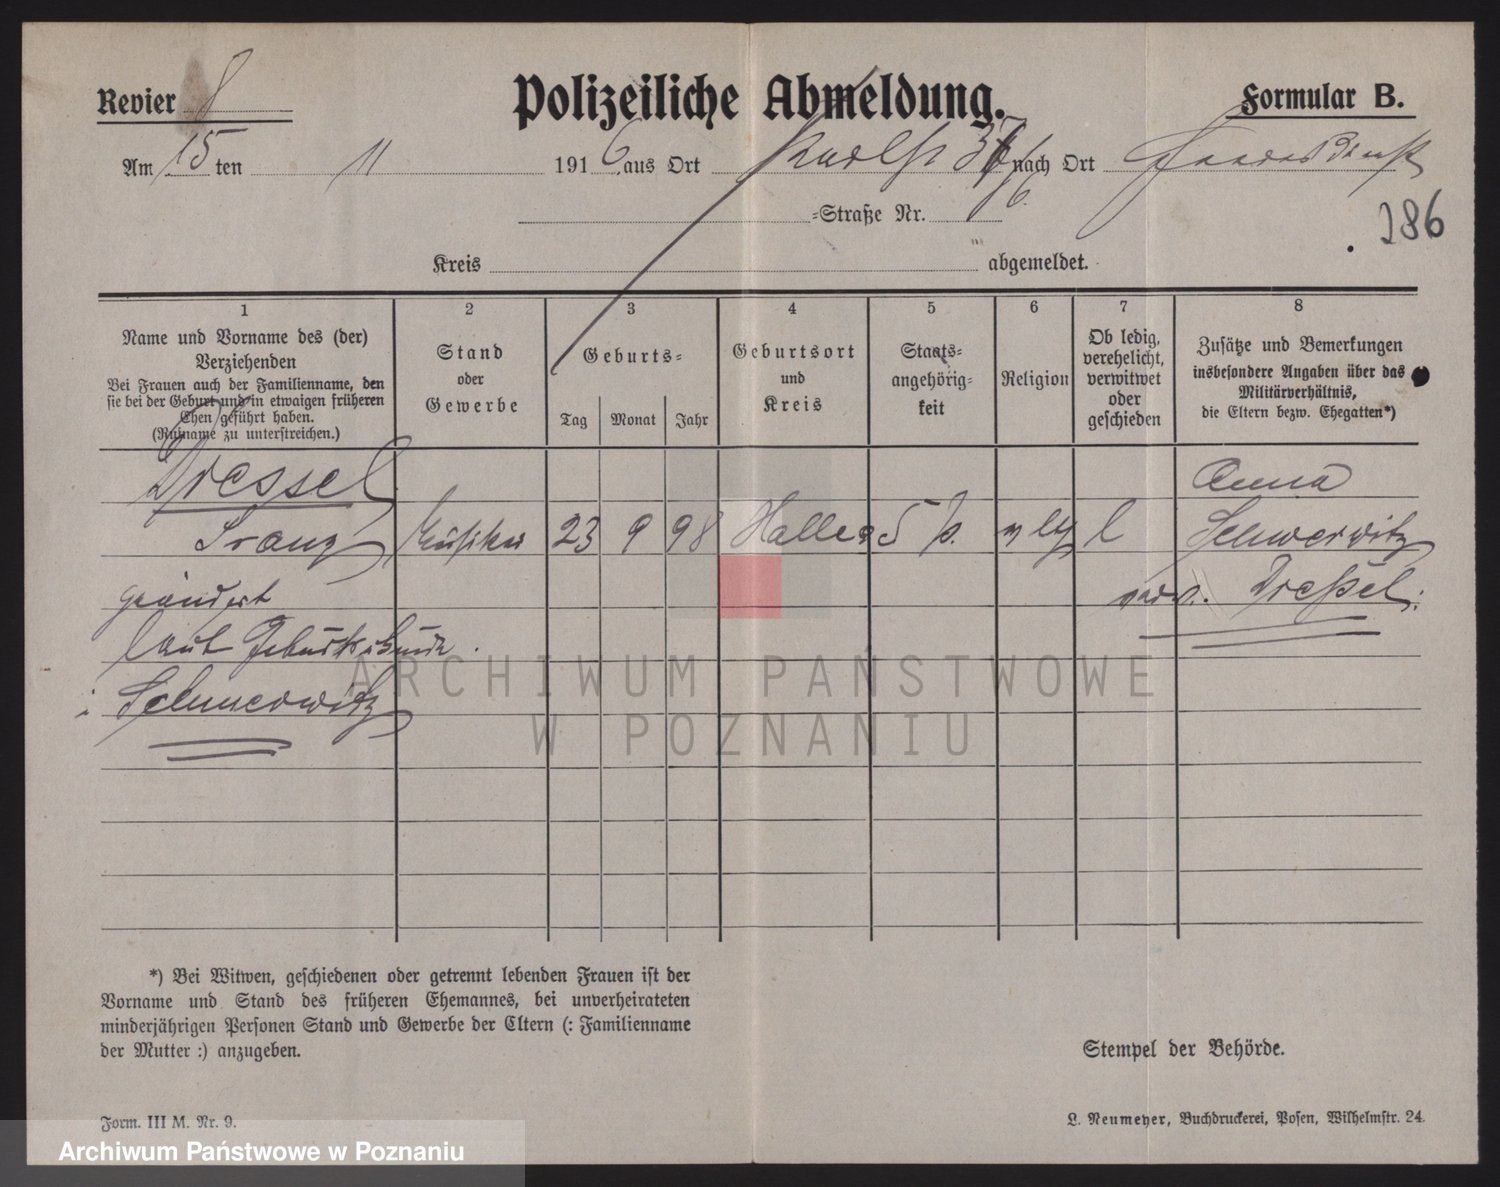 Revier 8
Polizeiliche Abmeldung.
Formular B.
Am 15 ten 11 1916 aus Ort nach Ort Heeresdienst
=Straße Nr.
286
Kreis abgemeldet.
1
Name und Vorname des (der)
Verziehenden
Bei Frauen auch der Familienname, den
sie bei der Geburt und in etwaigen früheren
Ehen geführt haben.
(Rufname zu unterstreichen.)
2
Stand
oder
Gewerbe
3
Geburts=
Tag Monat Jahr
4
Geburtsort
und
Kreis
5
Staats=
angehörig=
keit
6
Religion
7
Ob ledig,
verehelicht,
verwitwet
oder
geschieden
8
Zusätze und Bemerkungen
insbesondere Angaben über das
Militärverhältnis,
die Eltern bezw. Ehegatten*)
Dressel Anna
Franz Musiker 23 9 98 Halle a S P. l Schmerwitz
geändert Dreßel
laut Geburtsurkunde
Schmerwitz
*) Bei Witwen, geschiedenen oder getrennt lebenden Frauen ist der
Vorname und Stand des früheren Ehemannes, bei unverheirateten
minderjährigen Personen Stand und Gewerbe der Eltern (: Familienname
der Mutter :) anzugeben.
Stempel der Behörde.
Form. III M. Nr. 9.
L. Neumeyer, Buchdruckerei, Posen, Wilhelmstr. 24
ARCHIWUM PAŃSTWOWE
W POZNANIU
Archiwum Państwowe w Poznaniu